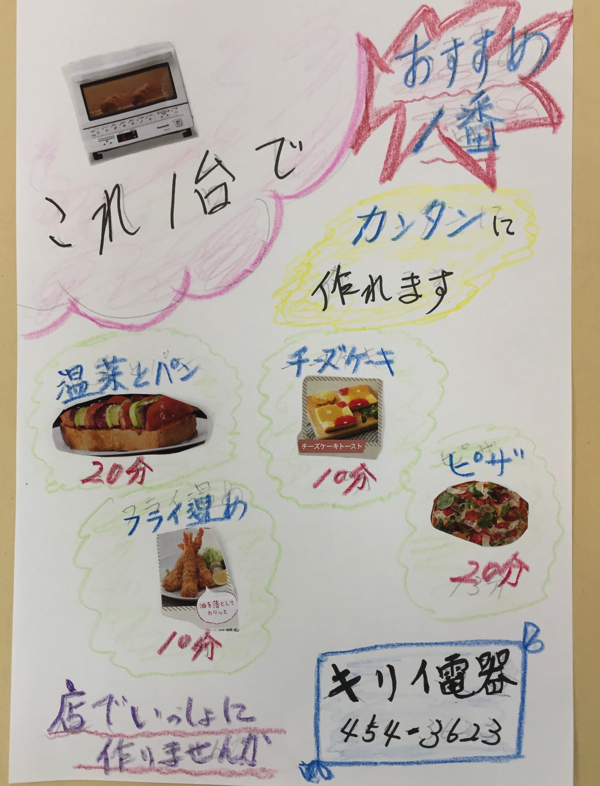 おすすめ
1番
これ1台で
カンタンに
作れます
温菜とパン
20分
チーズケーキ
チーズケーキトースト
10分
ピザ
20分
フライ温め
油を落として
カリッと
10分
店でいっしょに
作りませんか
キリイ電器
454-3623